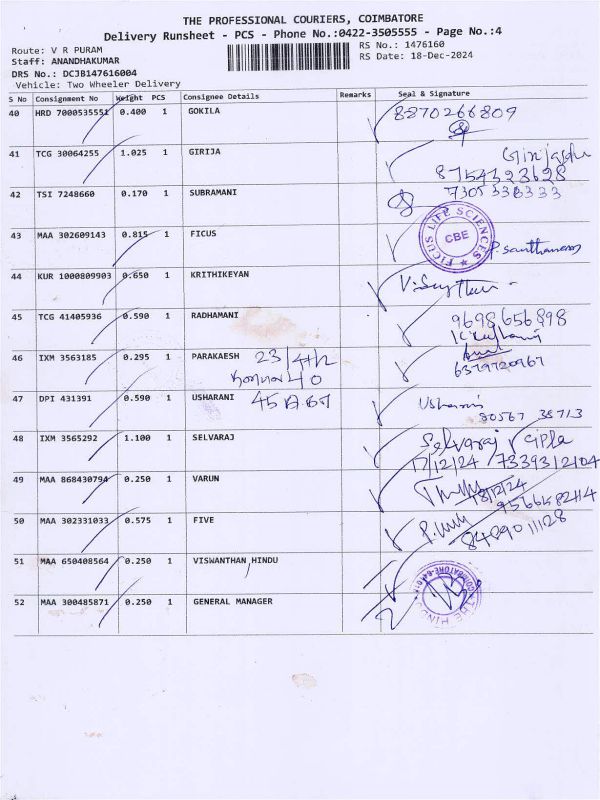 THE PROFESSIONAL COURIERS, COIMBATORE
Delivery Runsheet - PCS - Phone No.:0422-3505555 - Page No.:4
Route: V R PURAM
RS No.: 1476160
Staff: ANANDHAKUMAR
RS Date: 18-Dec-2024
DRS No.: DCJB147616004
Vehicle: Two Wheeler Delivery
S No Consignment No Weight PCS Consignee Details Remarks Seal & Signature
40 HRD 7000535551 0.400 1 GOKILA 8870266809
41 TCG 30064255 1.025 1 GIRIJA
8754323628
42 TSI 7248660 0.170 1 SUBRAMANI 7305338333
43 MAA 302609143 0.815 1 FICUS
FICUS LIFE SCIENCES
CBE
44 KUR 1000809903 0.650 1 KRITHIKEYAN
45 TCG 41405936 0.590 1 RADHAMANI 9698656898
46 IXM 3563185 0.295 1 PARAKAESH 23/4th
40
6379720967
47 DPI 431391 0.590 1 USHARANI
80567 38713
48 IXM 3565292 1.100 1 SELVARAJ Selvaraj Cipla
17/12/24 7339312104
49 MAA 868430794 0.250 1 VARUN
18/12/24
50 MAA 302331033 0.575 1 FIVE
8489011128
51 MAA 650408564 0.250 1 VISWANTHAN,HINDU
52 MAA 300485871 0.250 1 GENERAL MANAGER
THE HINDU